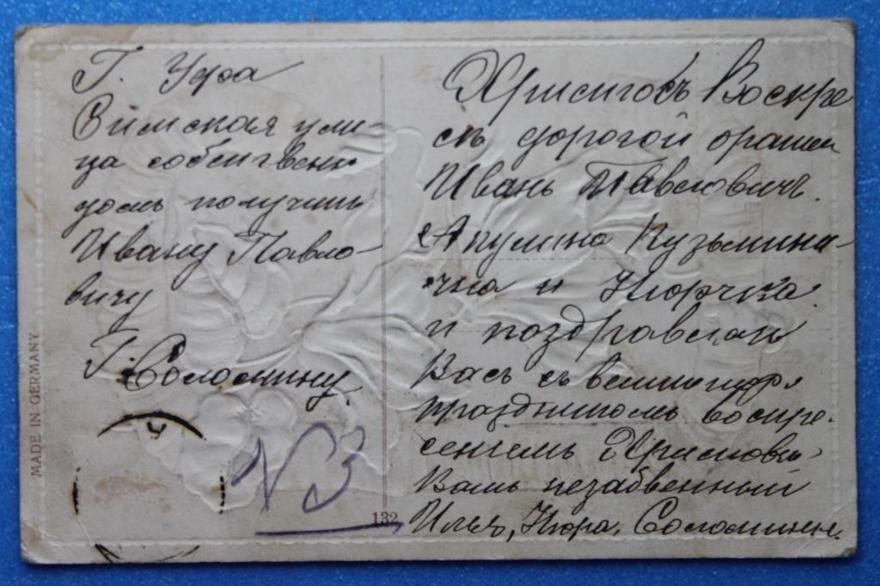 Г. Уфа
Вимская ули-
ца собственн
домъ получить
Ивану Павло-
вичу
Г. Соломину.
MADE IN GERMANY
132
Христосъ Воскре
съ дорогой
Иванъ Павловичъ.
Акулина Кузьмини-
чна и Нюрчка.
и поздравляю
Васъ съ
праздникомъ воскре-
сеніемъ Христовы-
Вамъ незабвенный
Илья, Нюра, Соломины.